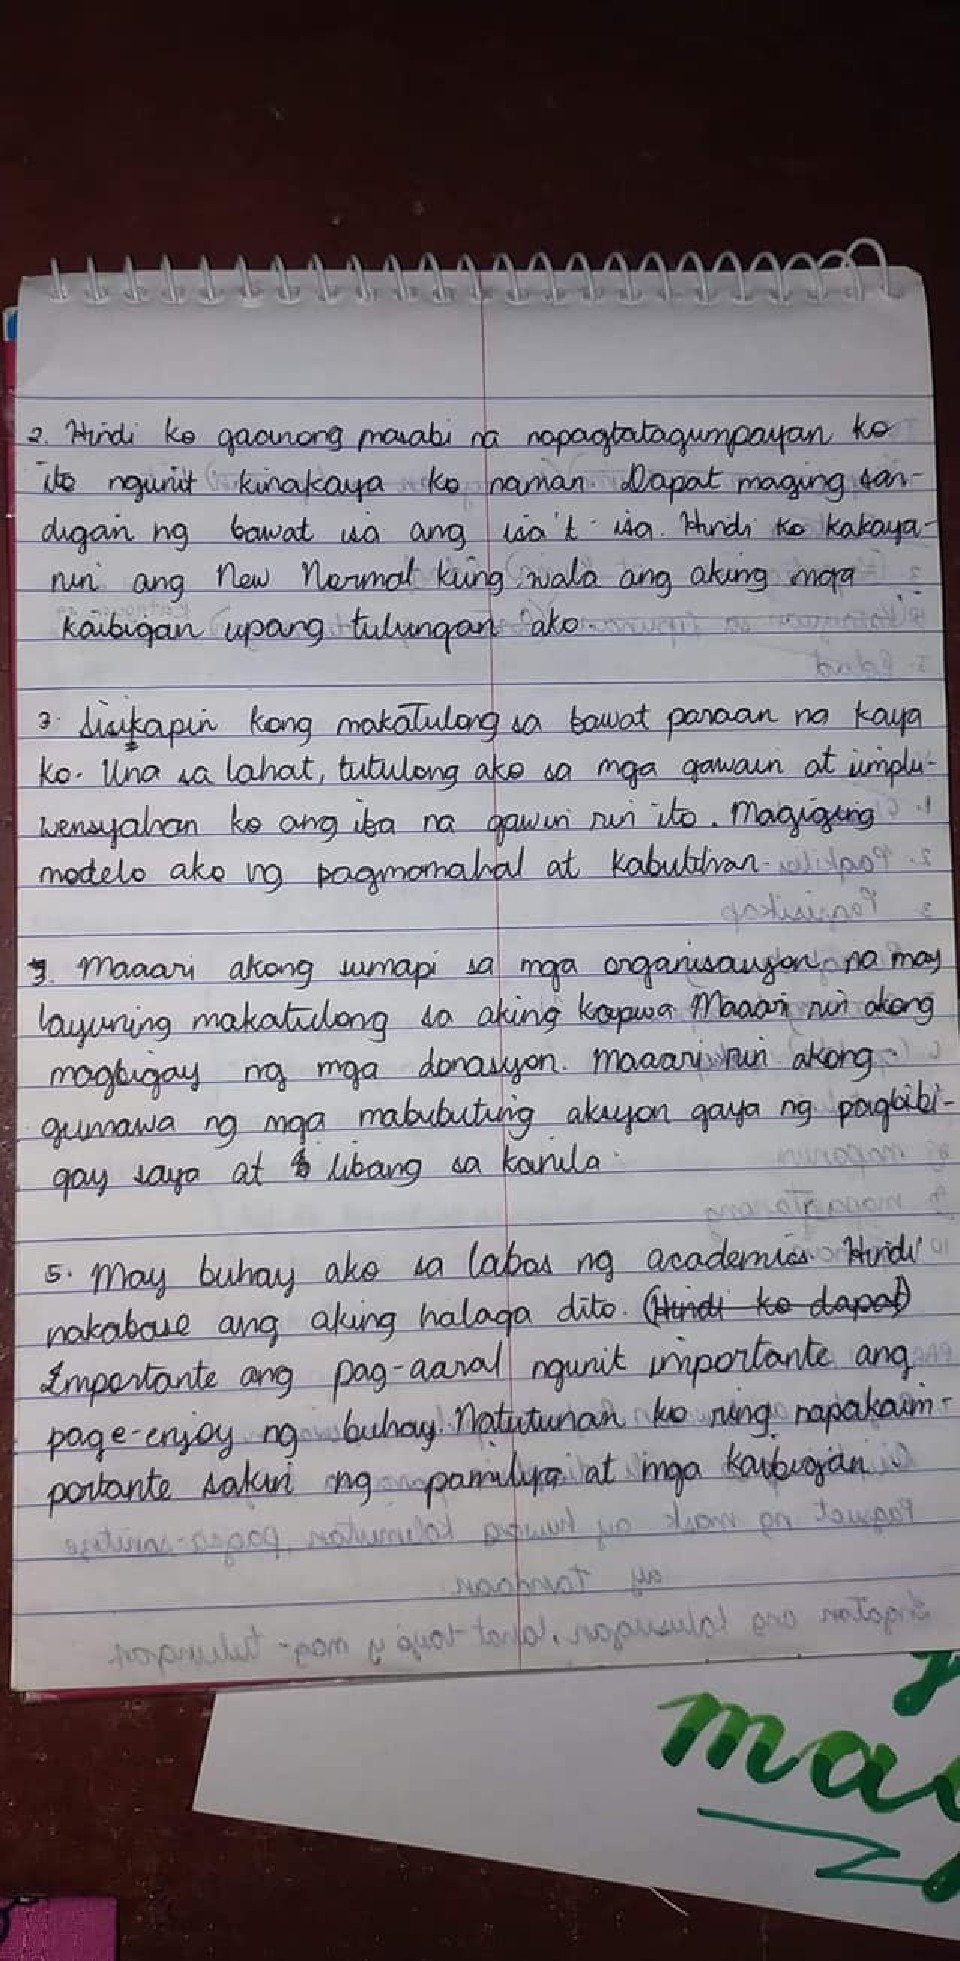 2. Hindi ko gaanong masabi na napagtatagumpayan ko
ito ngunit kinakaya ko naman. Dapat maging san-
digan ng bawat isa ang isa't-isa. Hindi ko kakaya-
nin ang New Normal kung wala ang aking mga
kaibigan upang tulungan ako.
3. Sisikapin kong makatulong sa bawat paraan na kaya
ko. Una sa lahat, tutulong ako sa mga gawain at iimplu-
wensyahan ko ang iba na gawin rin ito. Magiging
modelo ako ng pagmamahal at kabutihan.
Maaari akong sumapi sa mga organisasyon na may
layuning makatulong sa aking kapwa. Maaari rin akong
magbigay ng mga donasyon. Maaari rin akong
gumawa ng mga mabubuting aksyon gaya ng pagbibi-
gay saya at libang sa kanila.
5. May buhay ako sa labas ng academics. Hindi
nakabase ang aking halaga dito. (Hindi ko dapat)
Importante ang pag-aaral ngunit importante ang
page-enjoy ng buhay. Natutunan ko ring napakaim-
portante sakin ng pamilya at mga kaibigan.
may